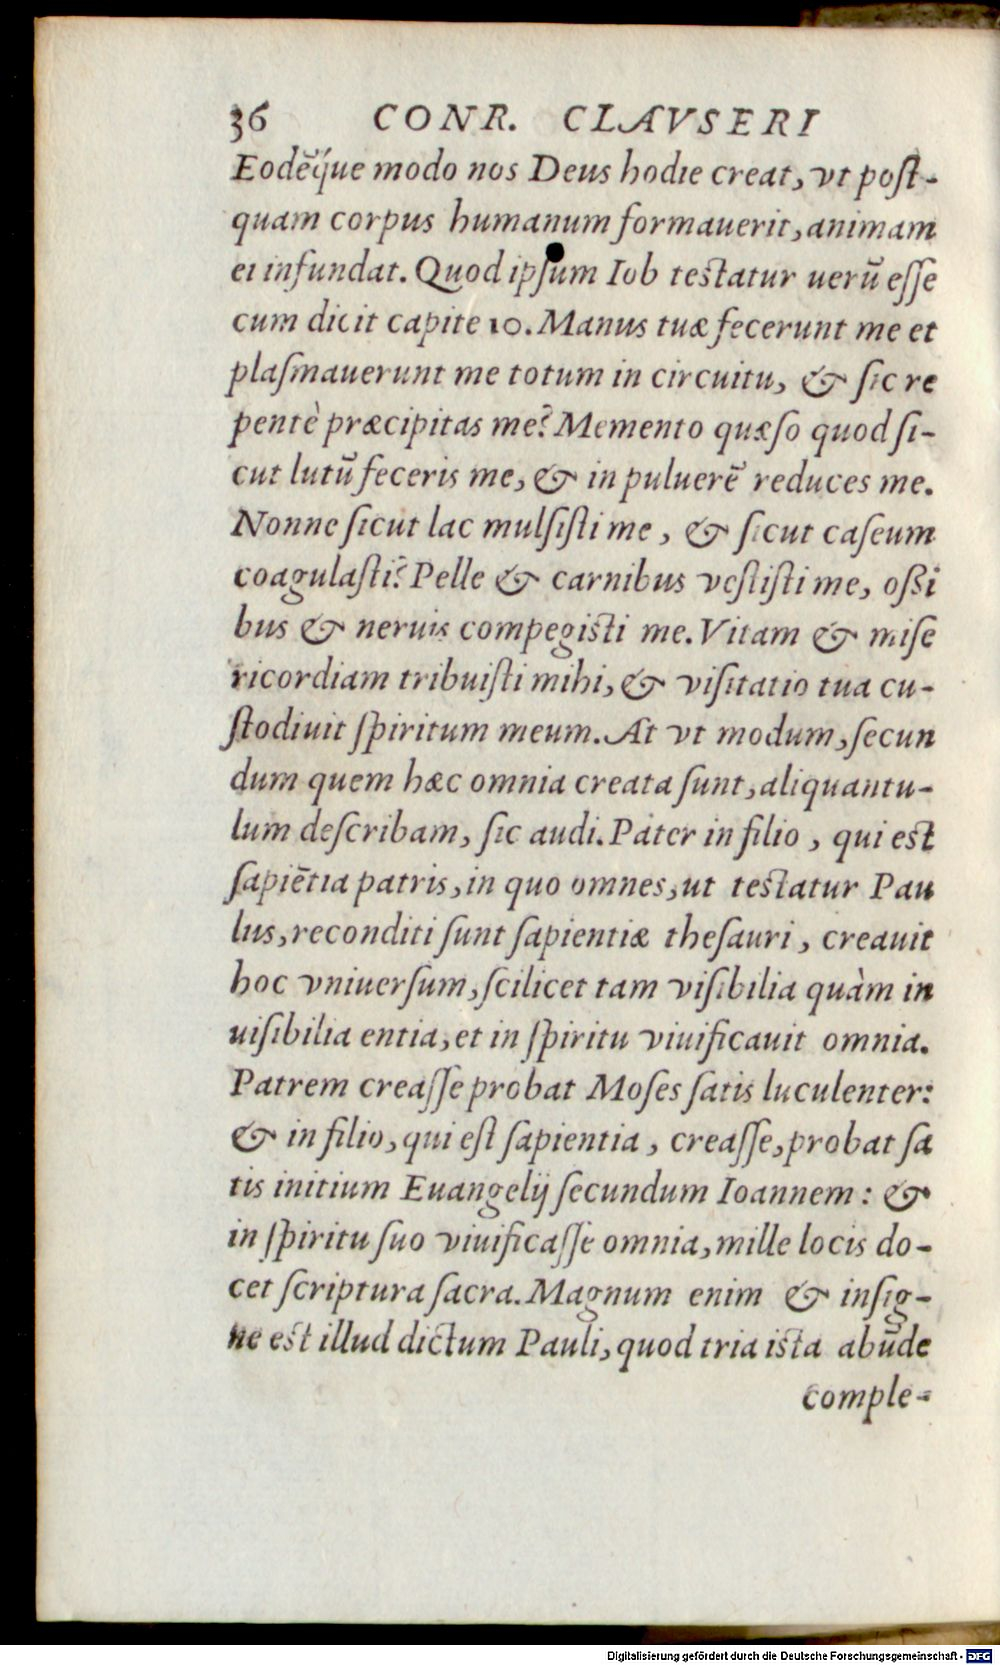 36 CONR. CLAVSERI
Eodēq́ue modo nos Deus hodie creat, vt poſt-
quam corpus humanum formauerit, animam
ei infundat. Quod ipſum Iob testatur uerū eſſe
cum dicit capite 10. Manus tuæ fecerunt me et
plaſmauerunt me totum in circuitu, & ſic re
pentè præcipitas me? Memento quæſo quod ſi-
cut lutū feceris me, & in puluerē reduces me.
Nonne ſicut lac mulſiſti me, & ſicut caſeum
coagulaſti? Pelle & carnibus veſtiſti me, oßi
bus & neruis compegisti me. Vitam & miſe
ricordiam tribuiſti mihi, & viſitatio tua cu-
ſtodiuit ſpiritum meum. At vt modum, ſecun
dum quem hæc omnia creata ſunt, aliquantu-
lum deſcribam, ſic audi. Pater in filio, qui est
ſapiētia patris, in quo omnes, ut testatur Pau
lus, reconditi ſunt ſapientiæ theſauri, creauit
hoc vniuerſum, ſcilicet tam viſibilia quàm in
uiſibilia entia, et in ſpiritu viuificauit omnia.
Patrem creaſſe probat Moſes ſatis luculenter:
& in filio, qui eſt ſapientia, creaſſe, probat ſa
tis initium Euangelij ſecundum Ioannem: &
in ſpiritu ſuo viuificaſſe omnia, mille locis do-
cet ſcriptura ſacra. Magnum enim & inſig-
ne est illud dictum Pauli, quod tria ista abūde
comple-
Digitalisierung gefördert durch die Deutsche Forschungsgemeinschaft - DFG